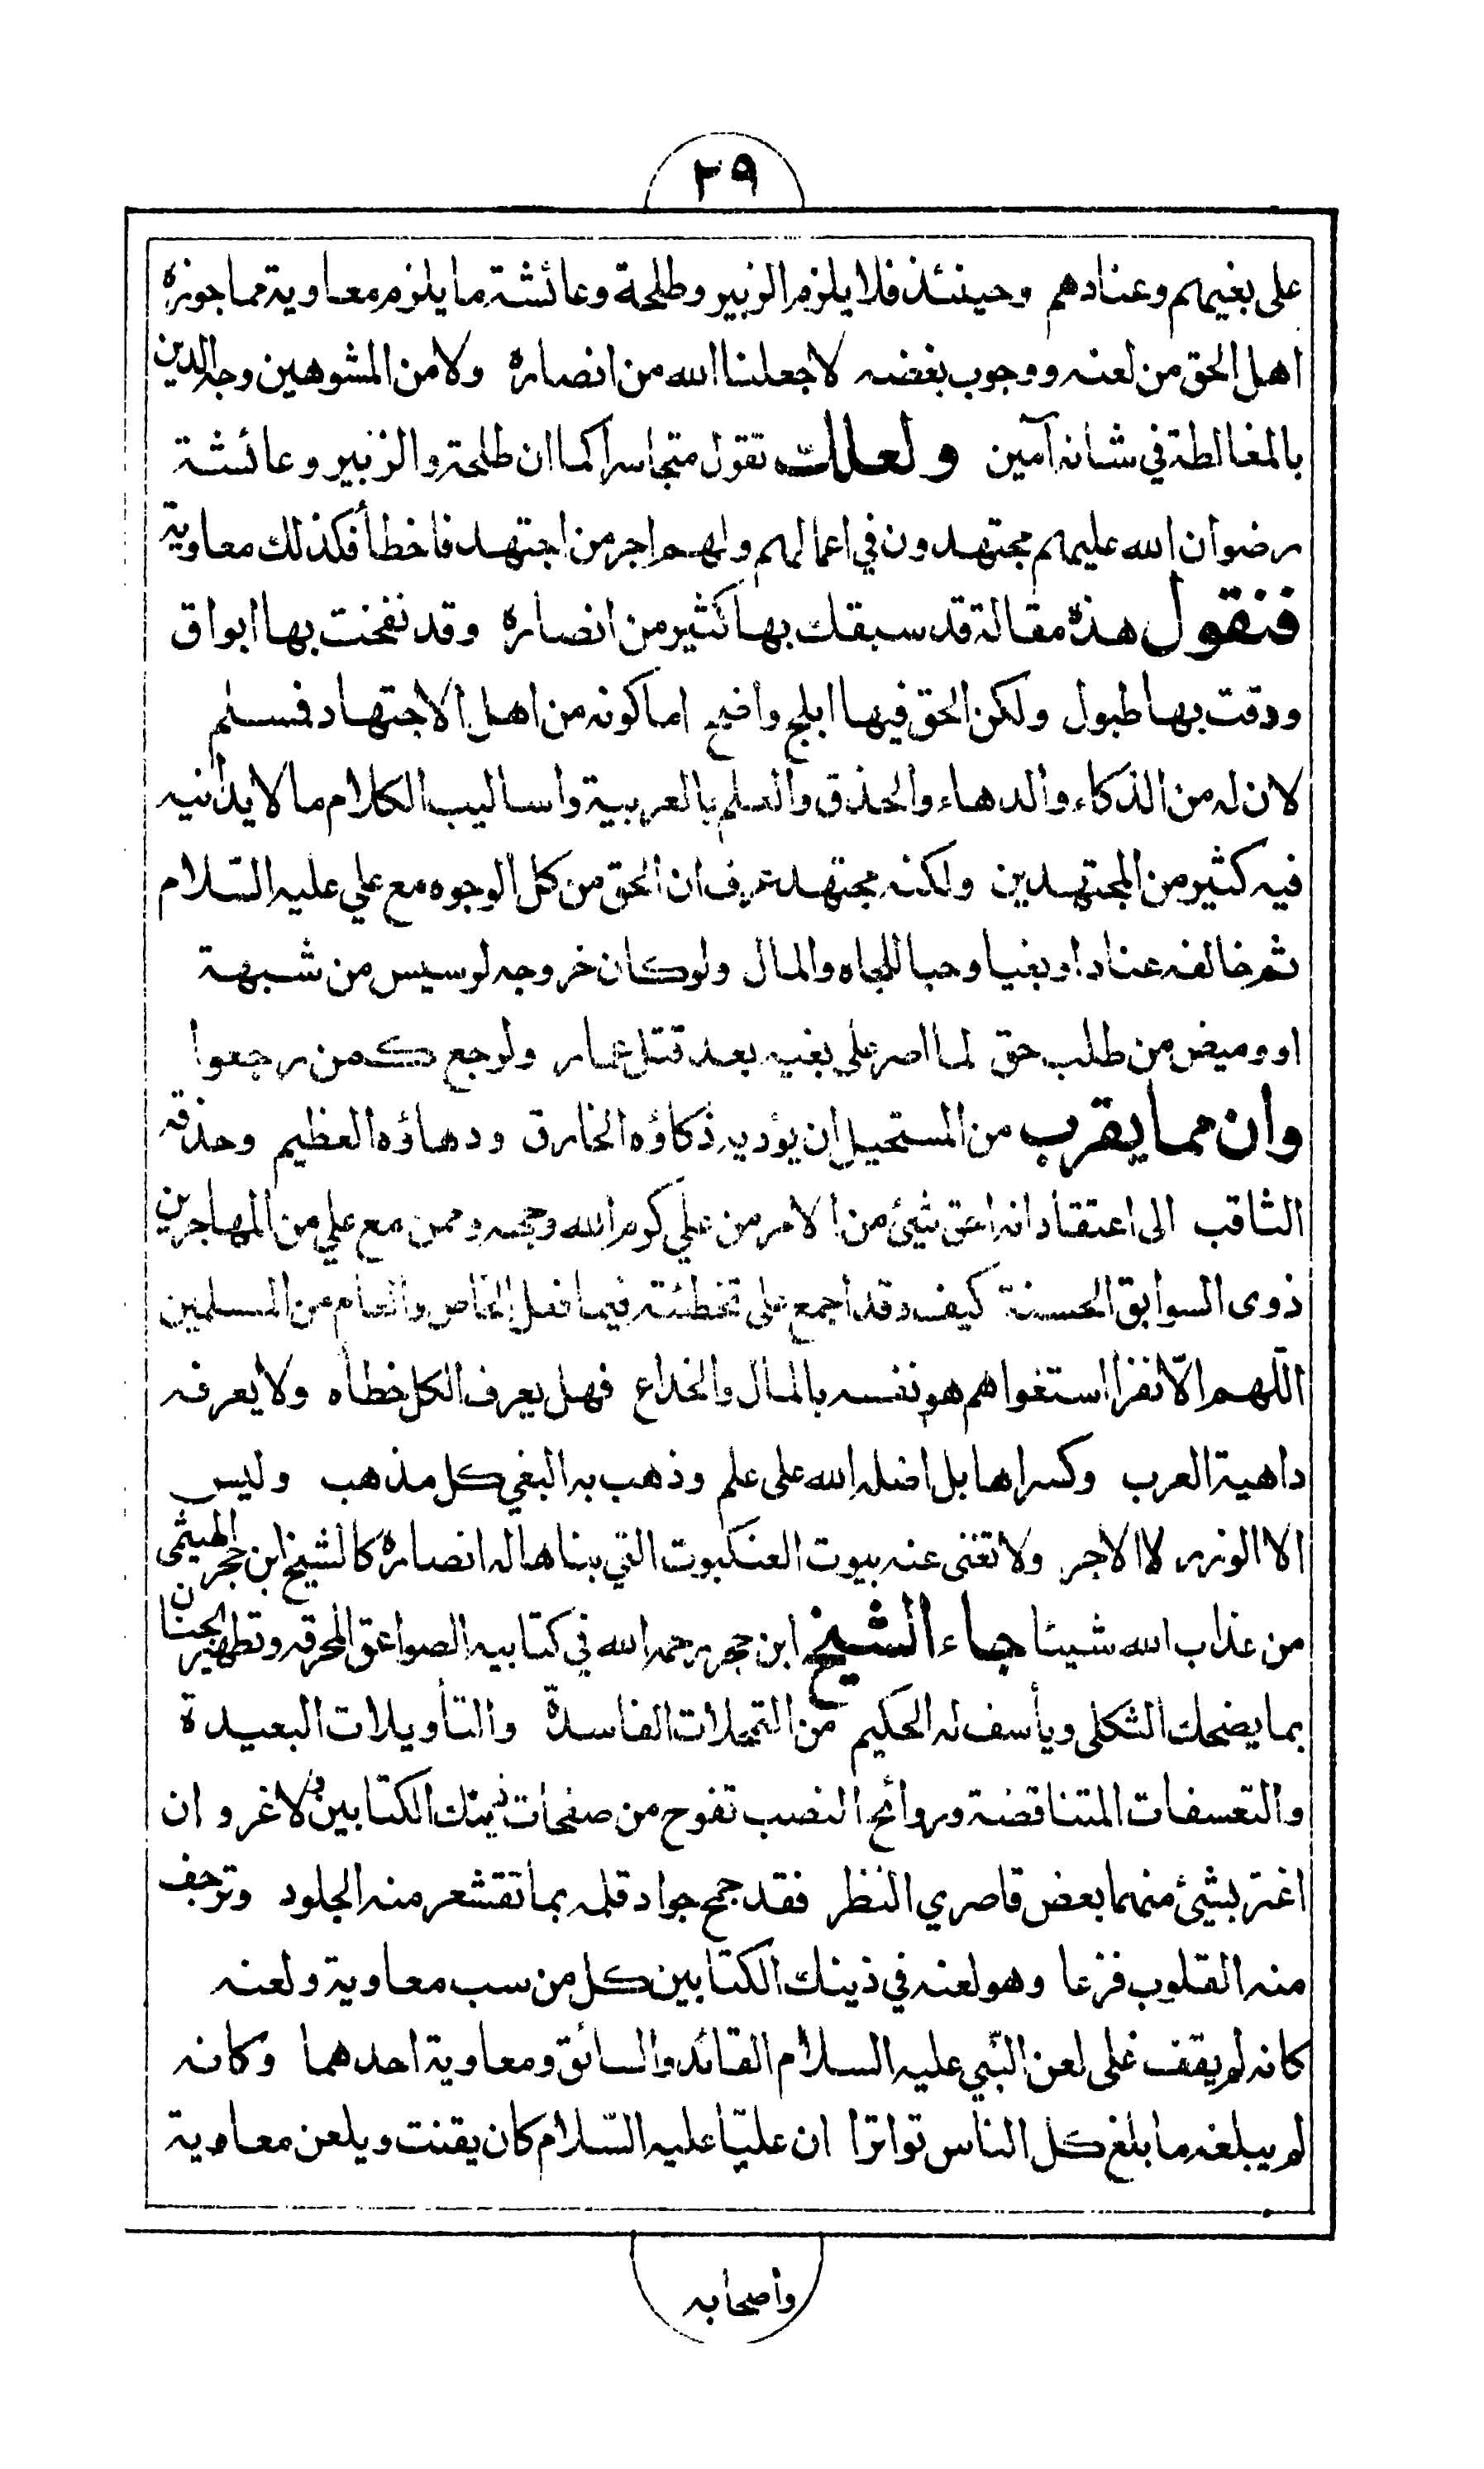 ٢٩
على بغيهم وعنادهم وحينئذ فلا يلزم الزبير وطلحة وعائشة ما يلزم معاوية مما جوزه
اهل الحق من لعنه ووجوب بغضه لا جعلنا الله من انصاره ولا من المشوهين وجه الدين
بالمغالطة في شانه آمين ولعلك تقول متجاسرا كما ان طلحة والزبير وعائشة
رضوان الله عليهم مجتهدون في اعمالهم ولهم اجر من اجتهد فاخطأ فكذلك معاوية
فنقول هذه مقالة قد سبقك بها كثير من انصاره وقد نفخت بها ابواق
ودقت بها طبول ولكن الحق فيها ابلج واضح اما كونه من اهل الاجتهاد فمسلم
لان له من الذكاء والدهاء والحذق والعلم بالعربية واساليب الكلام ما لا يدانيه
فيه كثير من المجتهدين ولكنه مجتهد عرف ان الحق من كل الوجوه مع علي عليه السّلام
ثم خالفه عنادا وبغيا وحبا للجاه والمال ولو كان خروجه لرسيس من شبهة
او وميض من طلب حق لما اصر على بغيه بعد قتل عمار ولرجع كمن رجعوا
وان مما يقرب من المستحيل ان يؤديه ذكاؤه الخارق ودهاؤه العظيم وحذقه
الثاقب الى اعتقاد انه احق بشيئ من الامر من علي كرم الله وجهه وممن مع علي من المهاجرين
ذوى السوابق الحسنة كيف وقد اجمع على تخطئته فيما فعل الخاص والعام من المسلمين
اللّهم الّا نفرا استغواهم هو نفسه بالمال والخداع فهل يعرف الكل خطأه ولا يعرفه
داهية العرب وكسراها بل اضله الله على علم وذهب به البغي كل مذهب وليس
الا الوزر لا الاجر ولا تغنى عنه بيوت العنكبوت التي بناها له انصاره كالشيخ ابن حجر الهيثمى
من عذاب الله شيئا جاء الشيخ ابن حجر رحمه الله في كتابيه الصواعق المحرقه وتطهير الجنان
بما يضحك الثكلى ويأسف له الحكيم من التمحلات الفاسدة والتأويلات البعيدة
والتعسفات المتناقضة وروائح النصب تفوح من صفحات ذينك الكتابين ولا غرو ان
اغتر بشيئ منهما بعض قاصري النظر فقد جمح جواد قلمه بما تقشعر منه الجلود وترجف
منه القلوب فزعا وهو لعنه في ذينك الكتابين كل من سب معاوية ولعنه
كانه لم يقف على لعن النّبي عليه السلام القائد والسائق ومعاوية احدهما وكانه
لم يبلغه ما بلغ كل الناس تواترا ان عليّا عليه السّلام كان يقنت ويلعن معاوية
واصحابه